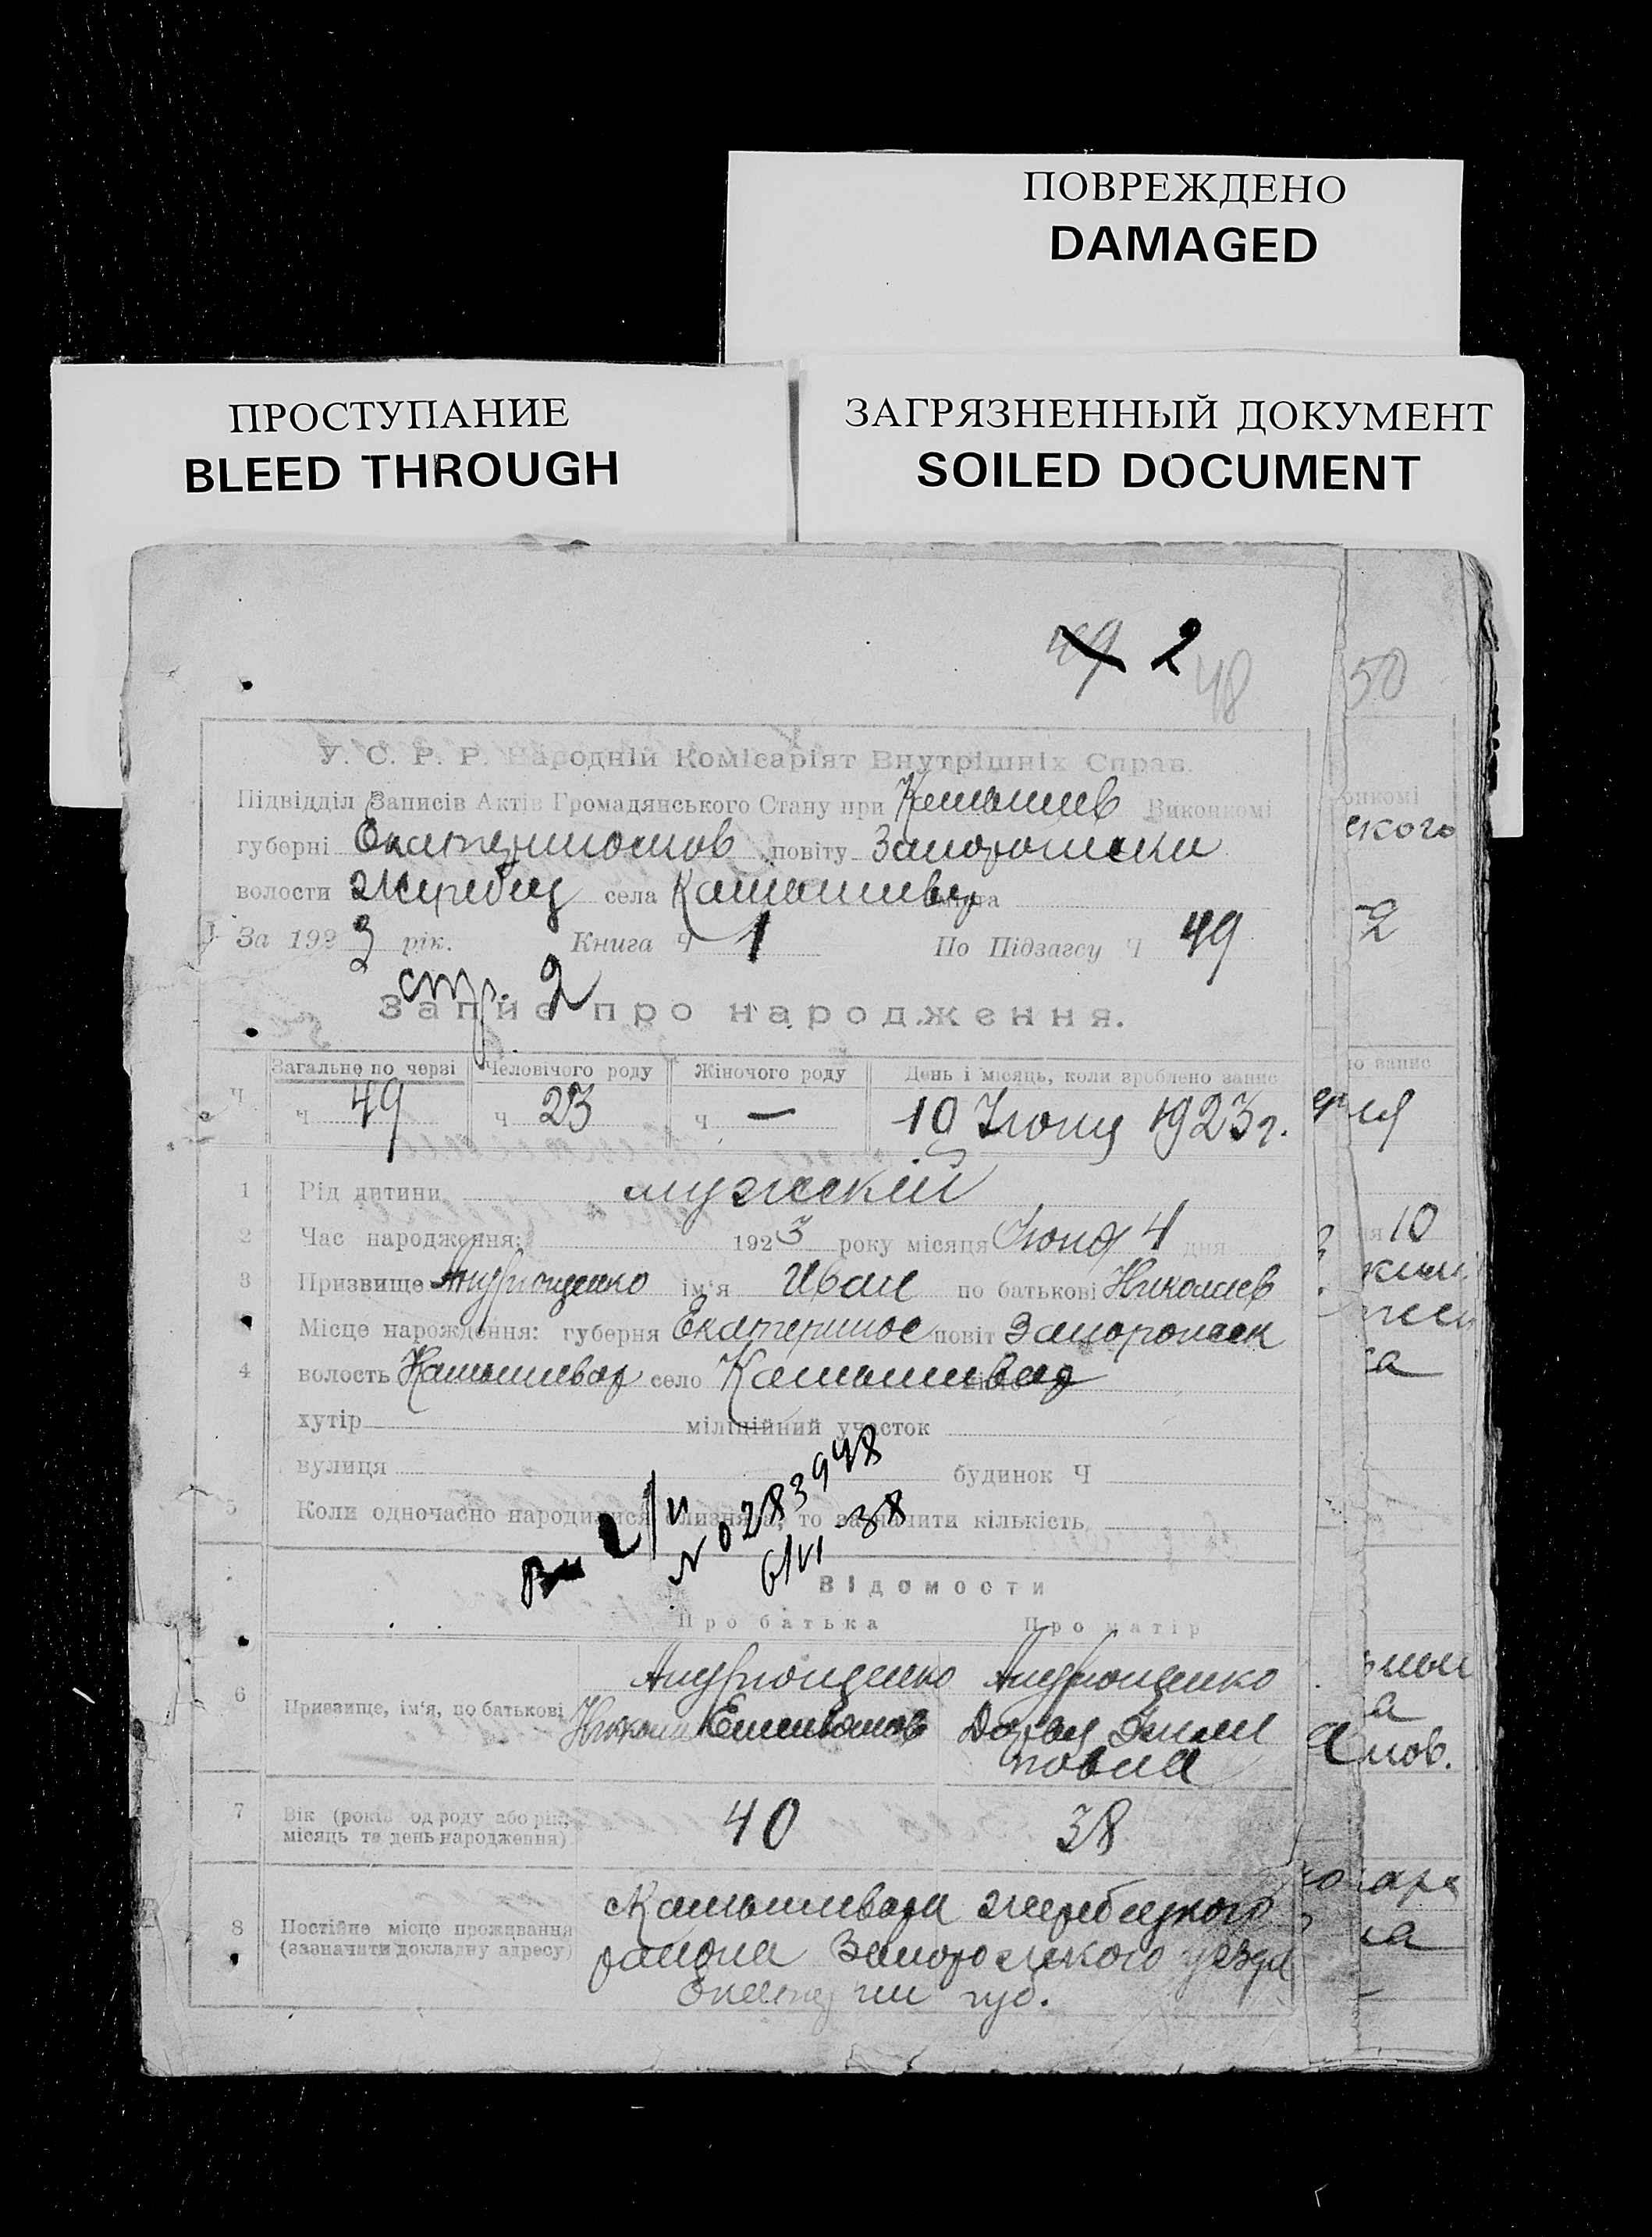 ПОВРЕЖДЕНО
DAMAGED
ПРОСТУПАНИЕ
BLEED THROUGH
ЗАГРЯЗНЕННЫЙ ДОКУМЕНТ
SOILED DOCUMENT
49 2 48
50
У. С. Р. Р. Народній Комісаріят Внутрішніх Справ.
Підвідділ Записів Актів Громадянського Стану при Камышев Виконкомі
губерні Екатеринослов повіту Запорожски
волости Жеребец села Камышевах міста
За 1923 рік. Книга Ч 1 По Підзагсу Ч 49
стр. 2
Запис про народження.
Загальне по черзі Человічого роду Жіночого роду День і місяць, коли зроблено запис
Ч ч 49 ч 23 ч — 10 Июня 1923 г.
1 Рід дитини мужский
2 Час народження: 1923 року місяця Июня 4 дня
3 Призвище Андрющенко ім'я Иван по батькові Николаев
Місце нарождення: губерня Екатеринос повіт Запорожск
4 волость Камышевах село Камышевах
хутір міліційний участок
вулиця будинок Ч
5 Коли одночасно народилися близнята, то зазначити кількість
№ 0283948
6/VI-38
Відомости
Про батька Про матір
6 Призвище, ім'я, по батькові Андрющенко Андрющенко
Николай Дария
повна
7 Вік (років од роду або рік, місяць та день народження) 40 38
8 Постійне місце проживання (зазначити докладну адресу) с Камышеваха Жеребецкого
района Запорожского уезда
губ.